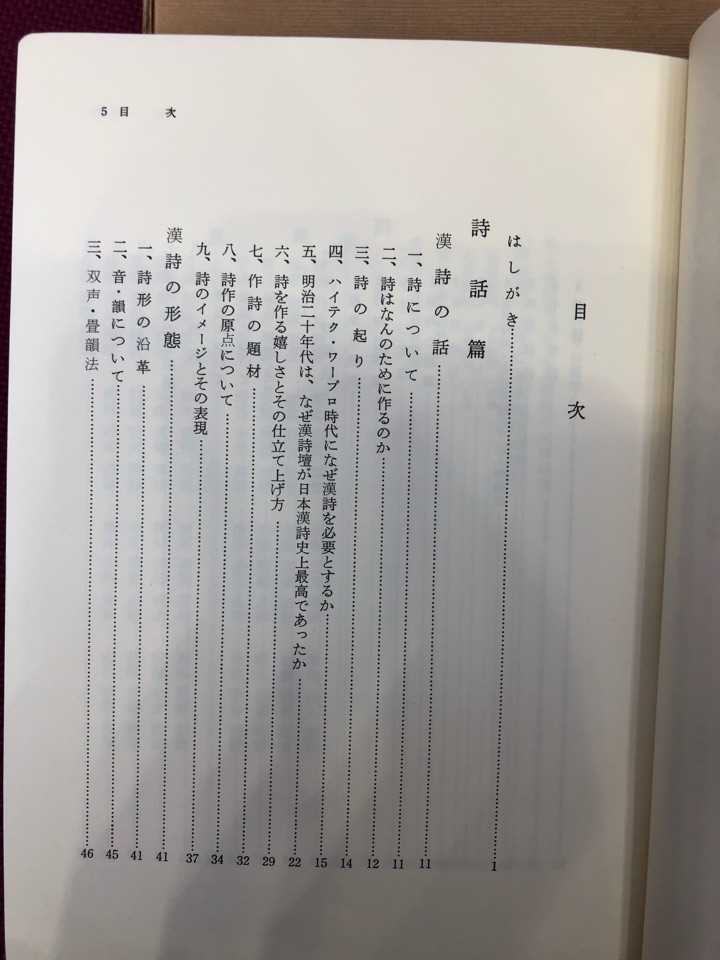 5 目 次
目 次
はしがき……1
詩話篇
漢詩の話……11
一、詩について……11
二、詩はなんのために作るのか……12
三、詩の起り……14
四、ハイテク・ワープロ時代になぜ漢詩を必要とするか……15
五、明治二十年代は、なぜ漢詩壇が日本漢詩史上最高であったか……22
六、詩を作る嬉しさとその仕立て上げ方……29
七、作詩の題材……32
八、詩作の原点について……34
九、詩のイメージとその表現……37
漢詩の形態……41
一、詩形の沿革……41
二、音・韻について……45
三、双声・畳韻法……46